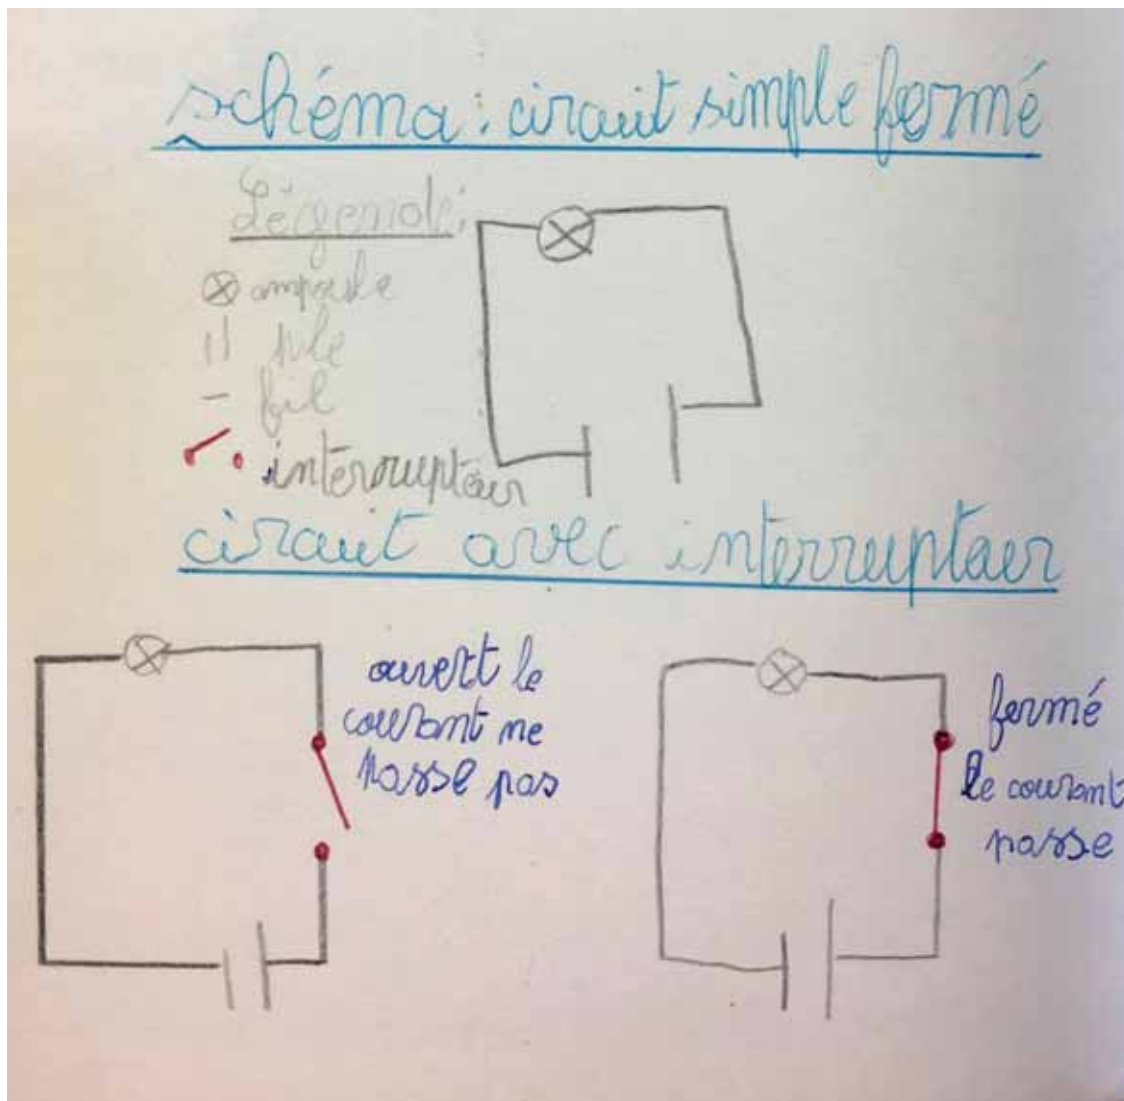 schéma : circuit simple fermé
Légende :
ampoule
pile
fil
interrupteur
circuit avec interrupteur
ouvert le
courant ne
passe pas
fermé
le courant
passe